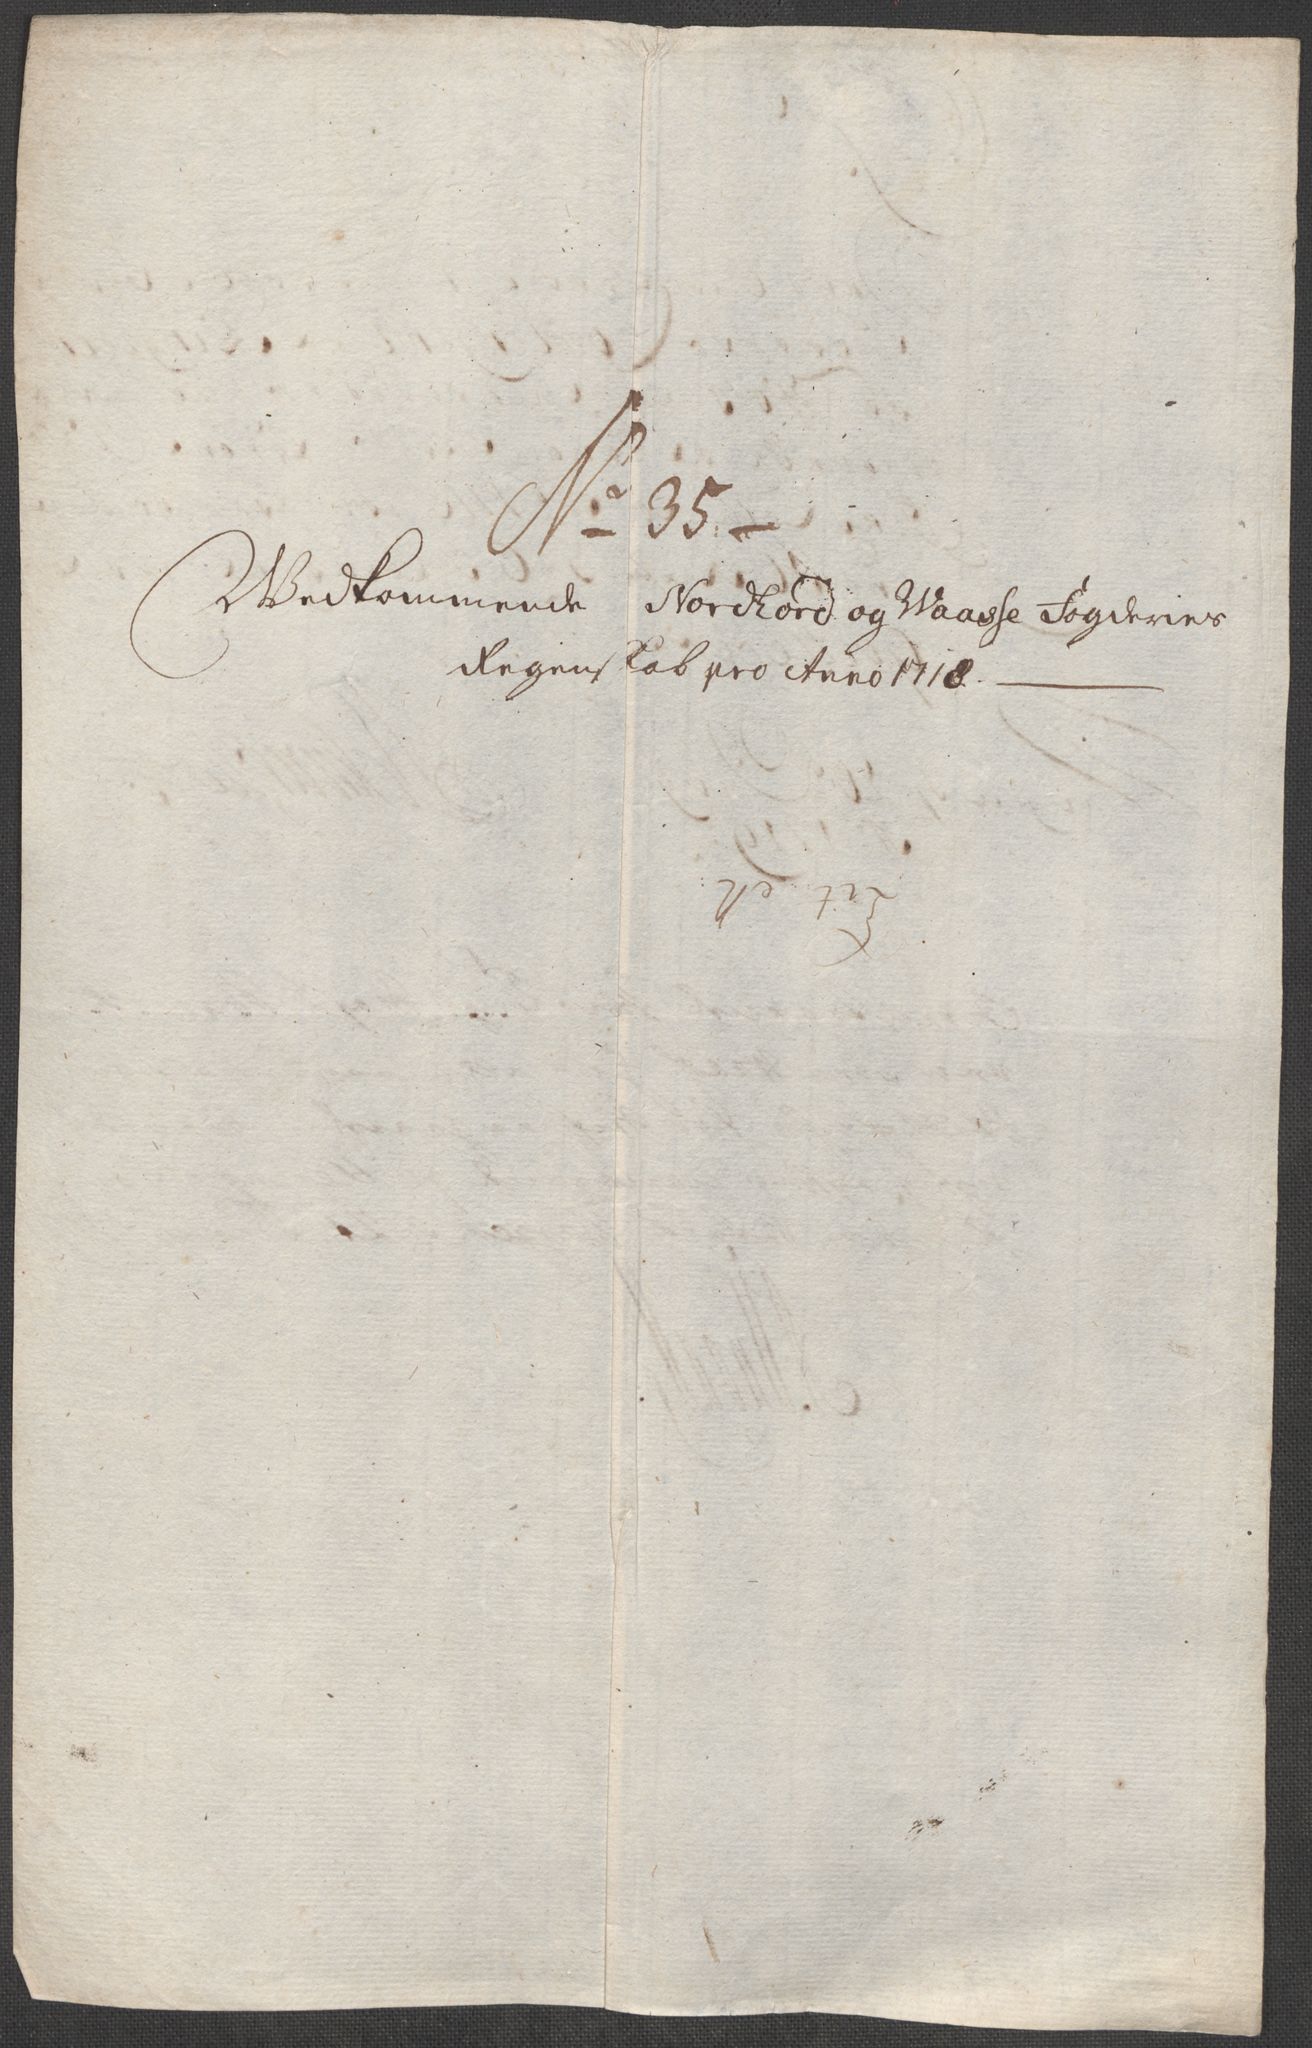 No 35
Wedkommende Nordhord og Waasse Fogderies
Regenskab pro Anno 1718